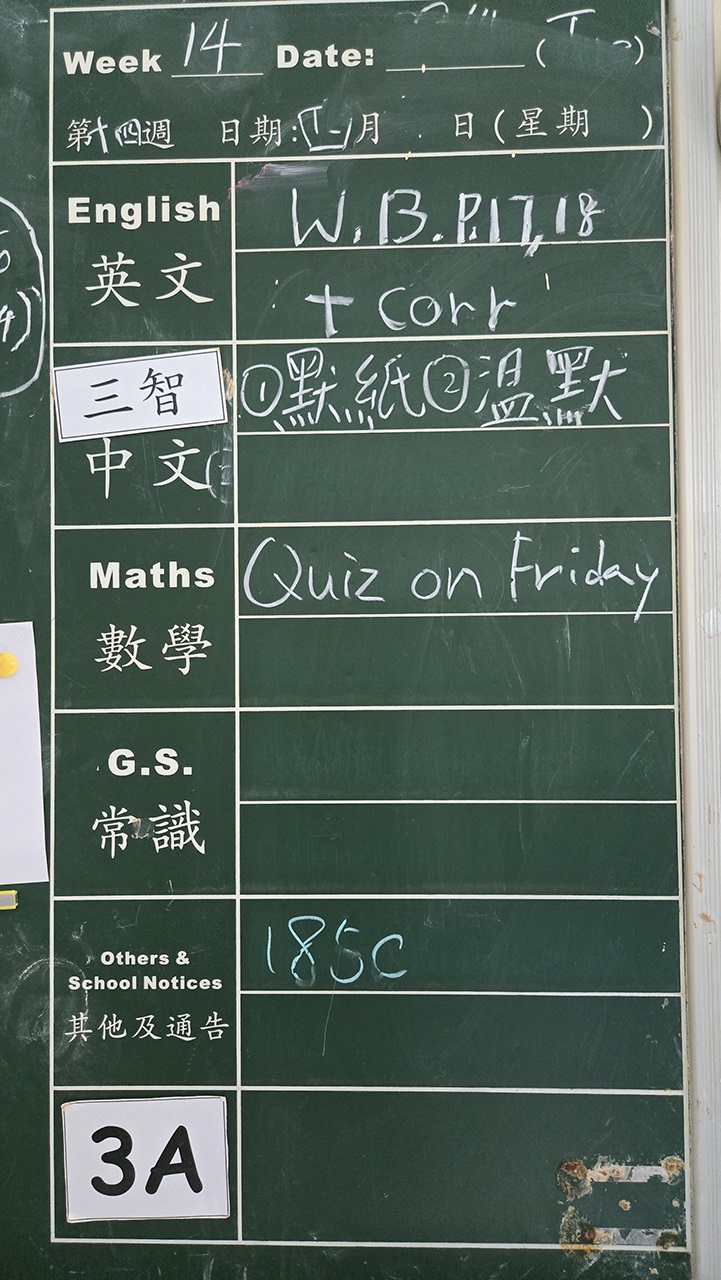 Week 14 Date: ______ ( )
第十四週 日期: 月 日(星期 )
English W.B.P.17,18
英文 + corr
三智 ①默紙②溫默
中文
Maths Quiz on Friday
數學
G.S.
常識
Others & 185c
School Notices
其他及通告
3A